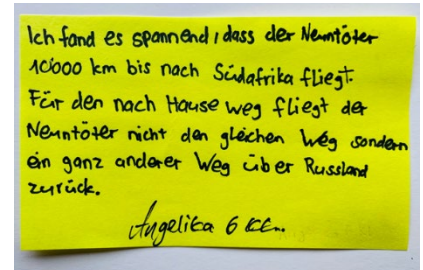 Ich fand es spannend, dass der Neuntöter
10'000 km bis nach Südafrika fliegt.
Für den nach Hause weg fliegt der
Neuntöter nicht den gleichen Weg sondern
ein ganz anderer Weg über Russland
zurück.
Angelika 6 Kl.